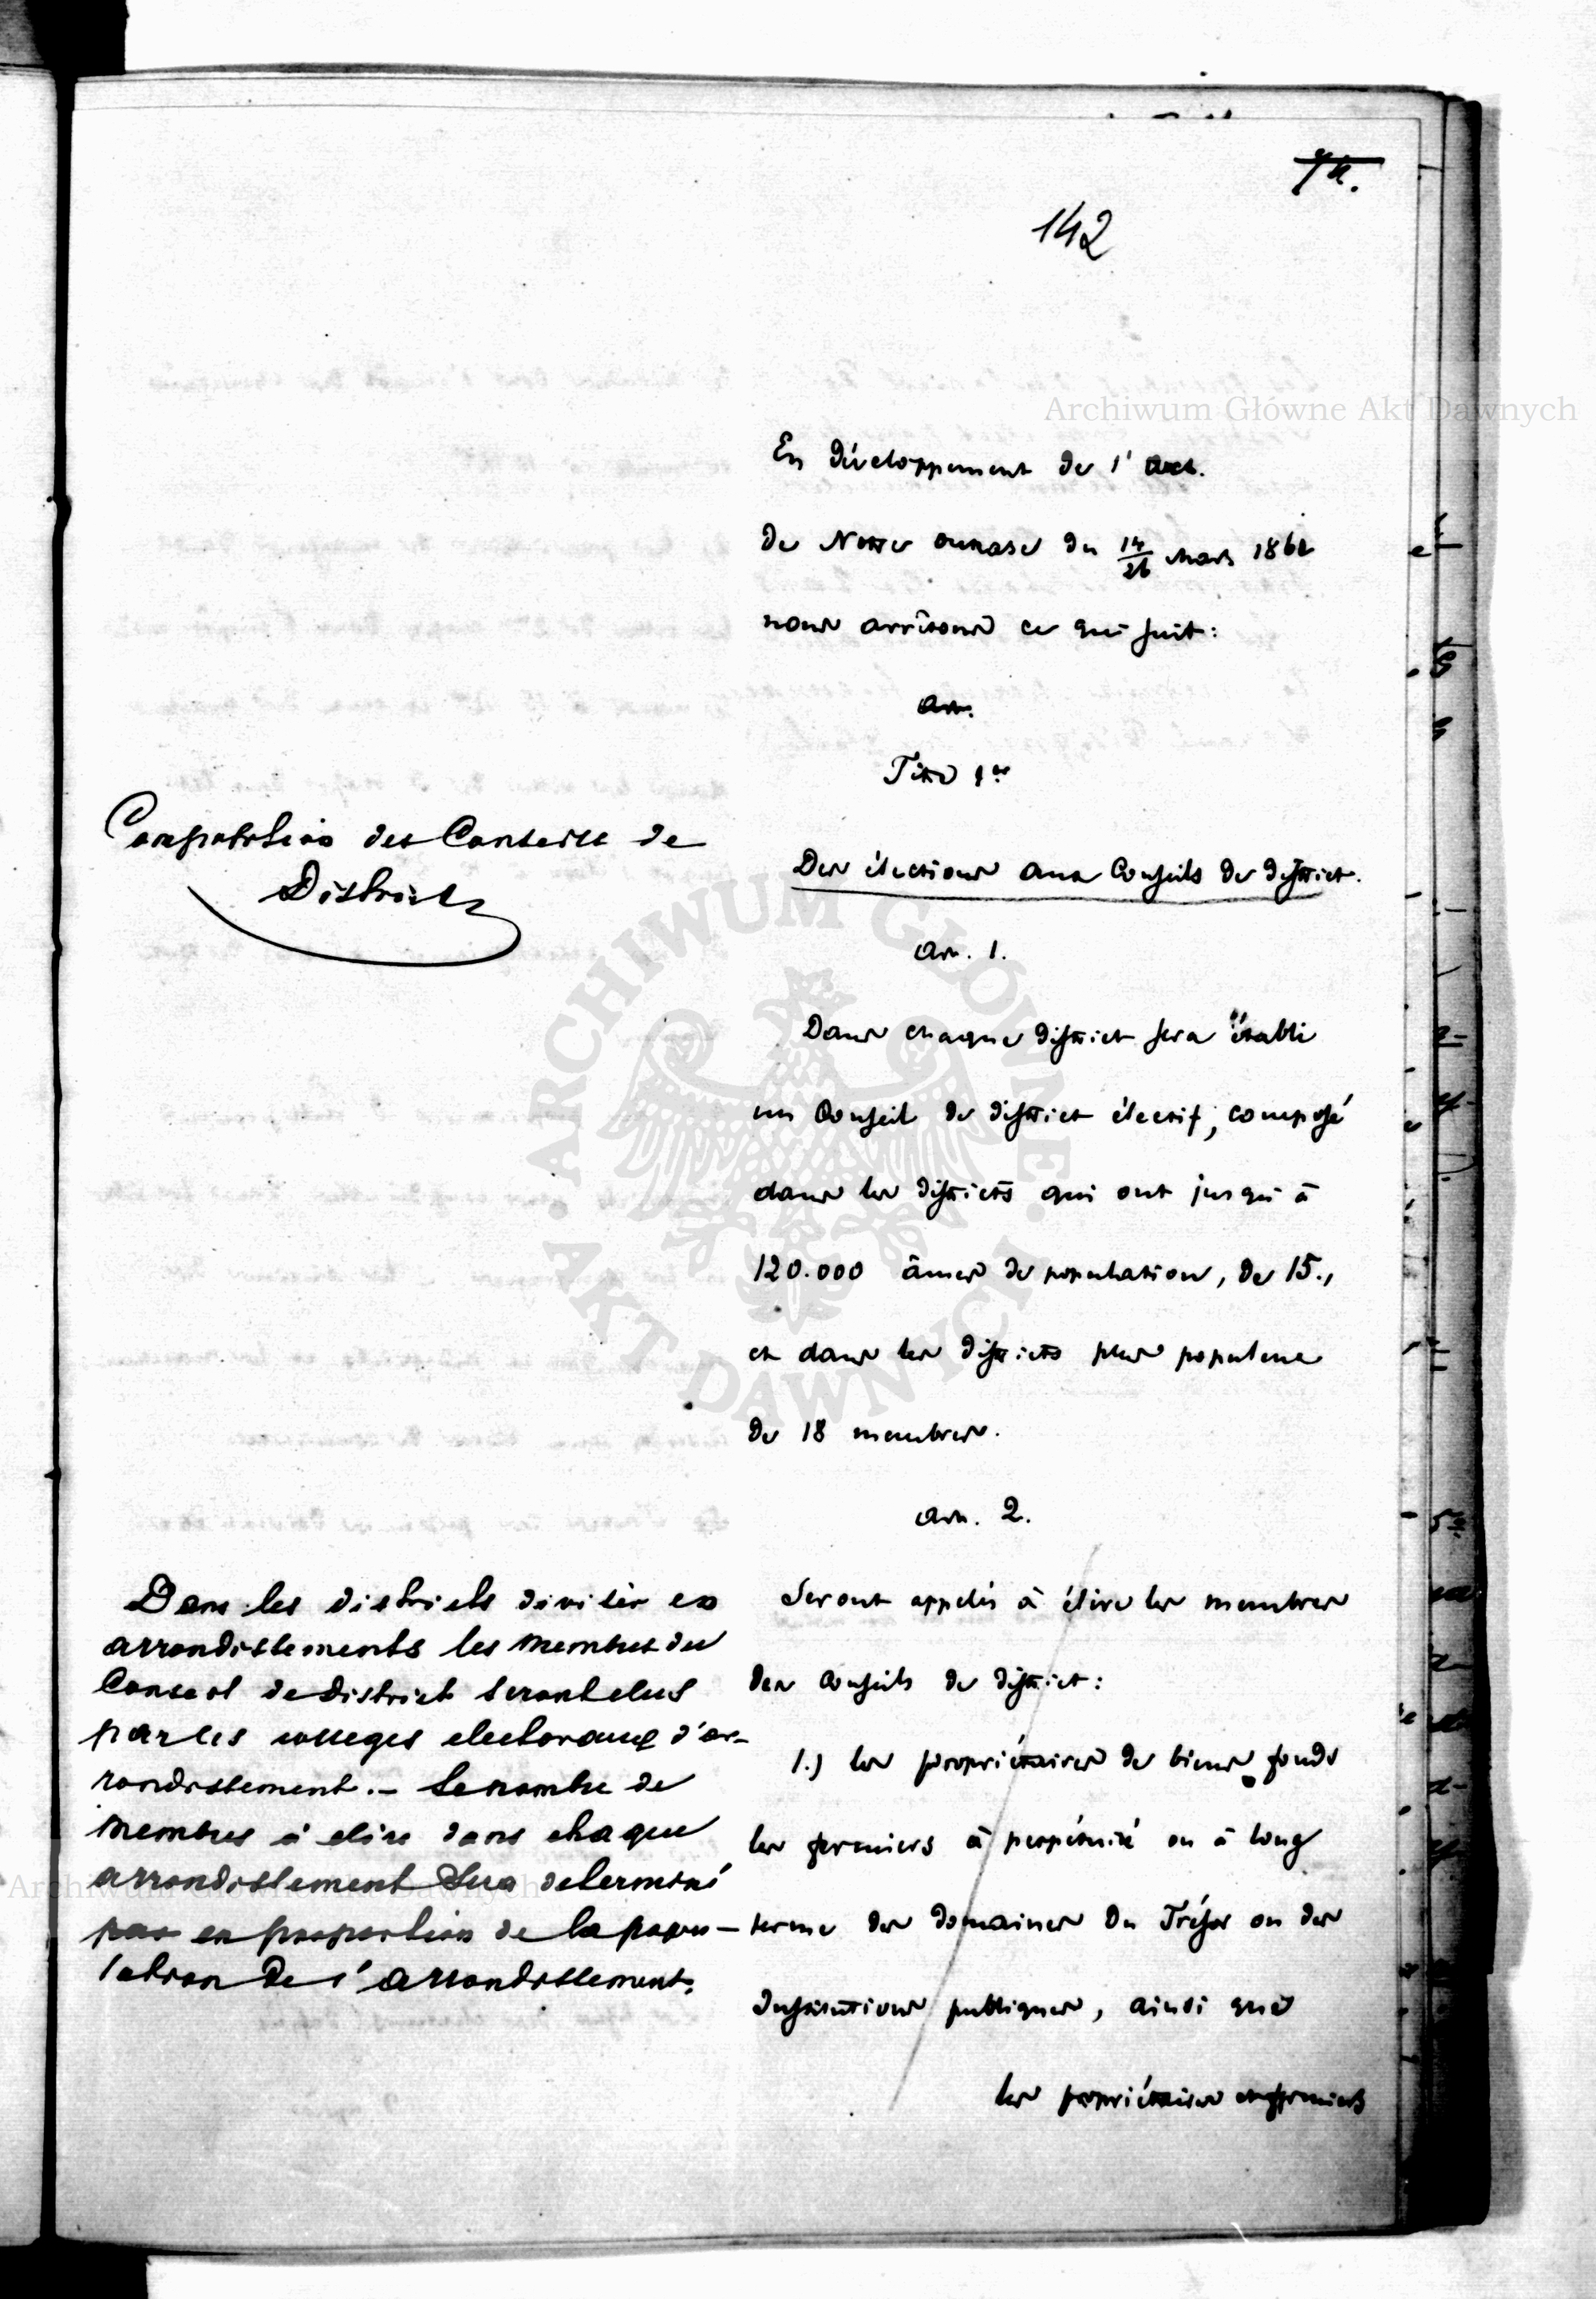 142
Archiwum Główne Akt Dawnych
En développement de l'Art.
de Notre oukase du 14/26 Mars 1861
nous arrêtons ce qui suit:
Art.
Titre 1er
Composition des Conseils de
District
Des élections aux Conseils de district.
Art. 1.
Dans chaque district sera établi
un Conseil de district électif, composé
dans les districts qui ont jusqu'à
120.000 âmes de population, de 15.,
et dans les districts plus populeux
de 18 membres.
ARCHIWUM GŁÓWNE
AKT DAWNYCH
Art. 2.
Dans les districts divisés en
arrondissements les membres du
Conseil de District seront elus
par les colleges electoraux d'ar-
rondissement.- Le nombre de
membres à elire dans chaque
arrondissement sera determiné
par en proportion de la popu-
lation de l'arrondissement.
Seront appelés à élire les membres
des Conseils de district:
1.) les propriétaires de biens fonds
les fermiers à perpétuité ou à long
terme des domaines du Trésor ou des
Institutions publiques, ainsi que
les propriétaires et fermiers
Archiwum Główne Akt Dawnych